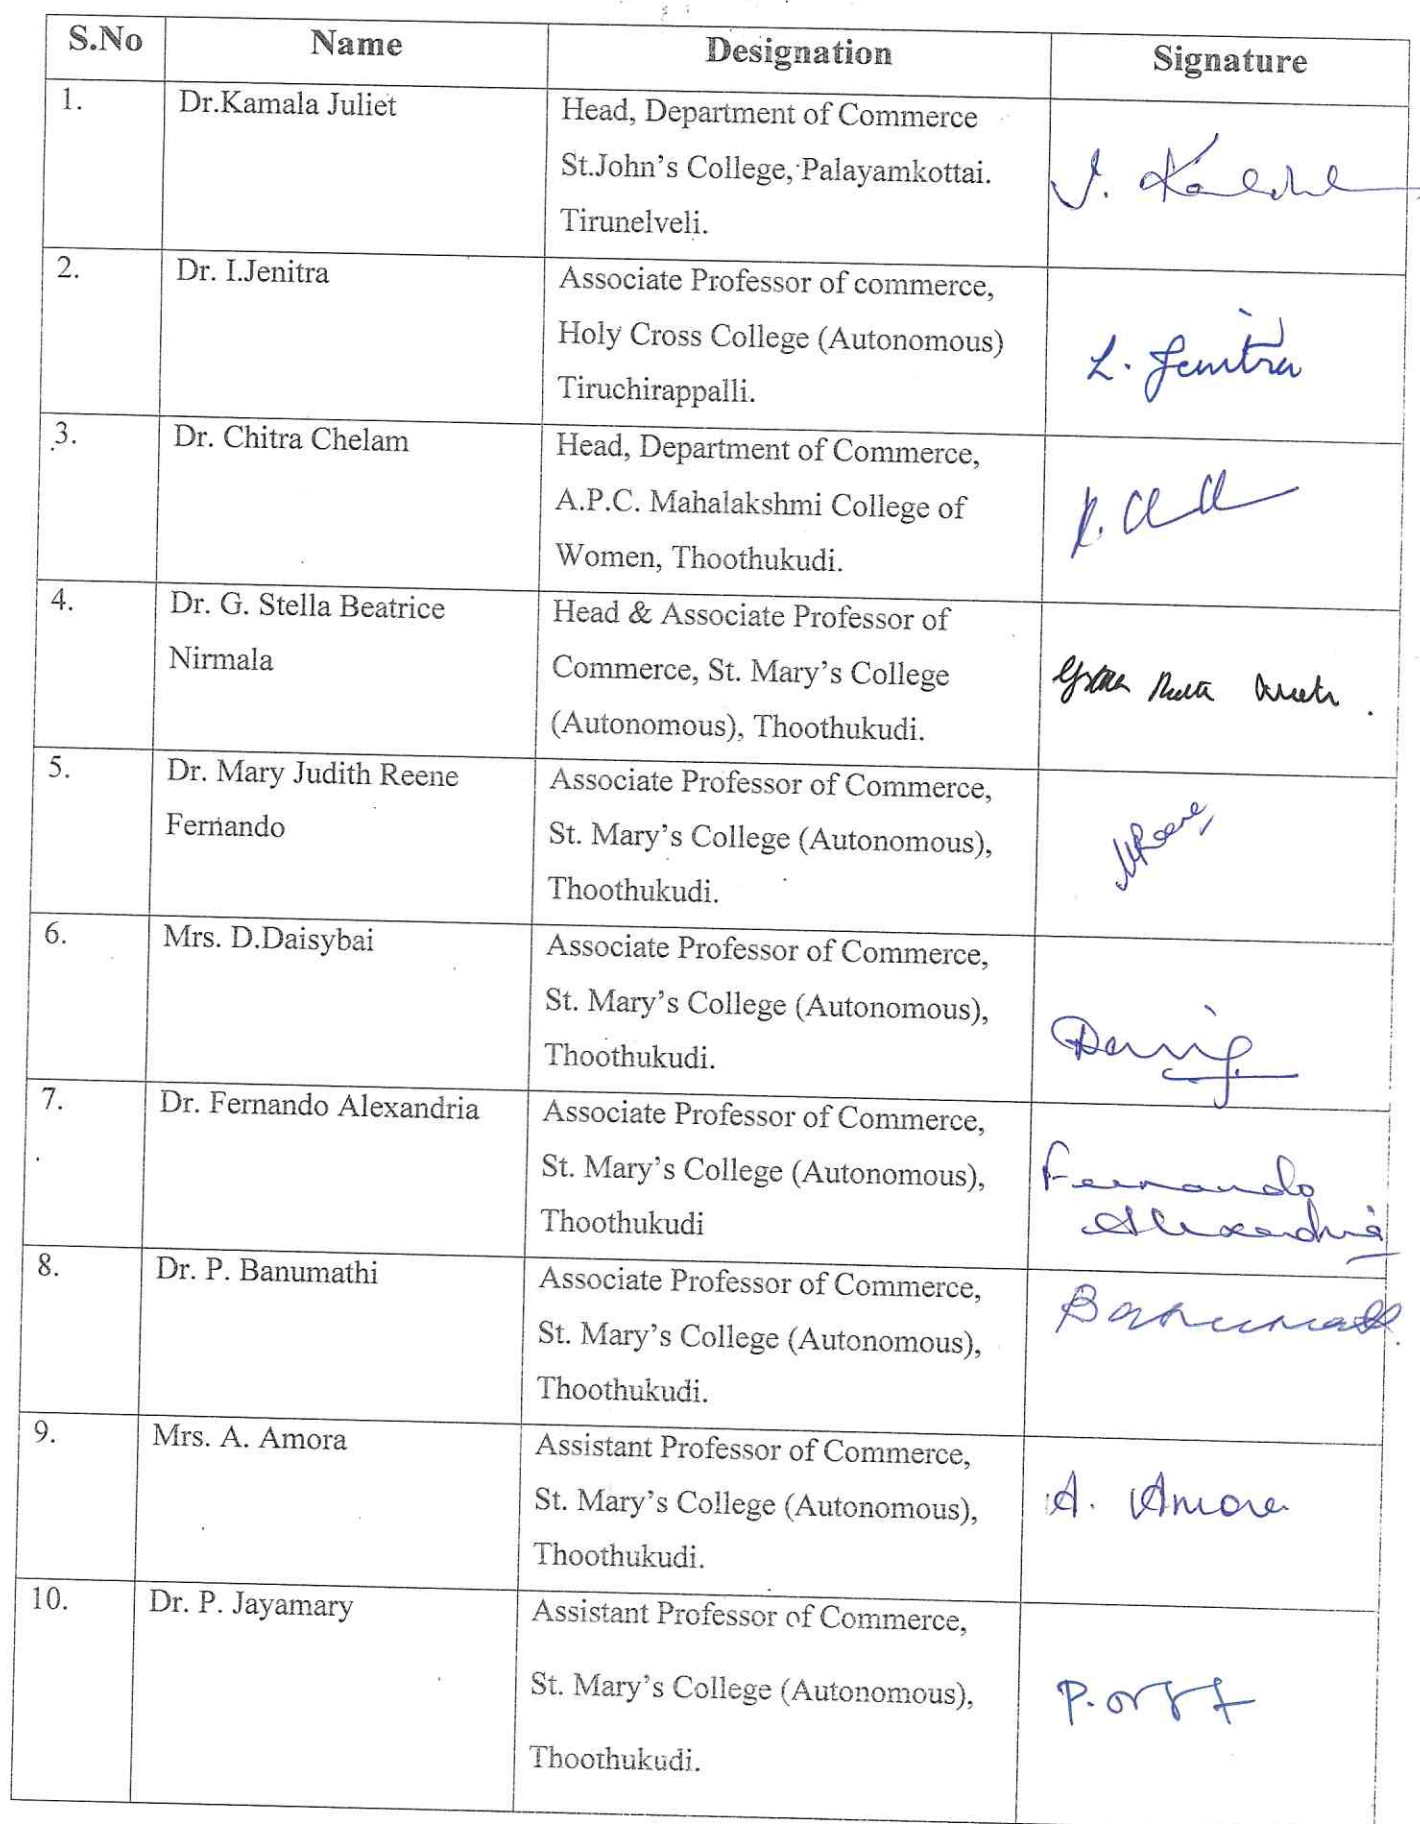 S.No Name Designation Signature
1. Dr.Kamala Juliet Head, Department of Commerce
St.John's College, Palayamkottai.
Tirunelveli.
J.
2. Dr. I.Jenitra Associate Professor of commerce,
Holy Cross College (Autonomous)
Tiruchirappalli.
I. Jenitra
3. Dr. Chitra Chelam Head, Department of Commerce,
A.P.C. Mahalakshmi College of
Women, Thoothukudi.
4. Dr. G. Stella Beatrice Head & Associate Professor of
Nirmala Commerce, St. Mary's College
(Autonomous), Thoothukudi.
5. Dr. Mary Judith Reene Associate Professor of Commerce,
Fernando St. Mary's College (Autonomous),
Thoothukudi.
MReene
6. Mrs. D.Daisybai Associate Professor of Commerce,
St. Mary's College (Autonomous),
Thoothukudi.
7. Dr. Fernando Alexandria Associate Professor of Commerce,
St. Mary's College (Autonomous),
Thoothukudi
Fernando
Alexandria
8. Dr. P. Banumathi Associate Professor of Commerce,
St. Mary's College (Autonomous),
Thoothukudi.
Banumathi
9. Mrs. A. Amora Assistant Professor of Commerce,
St. Mary's College (Autonomous),
Thoothukudi.
A. Amora
10. Dr. P. Jayamary Assistant Professor of Commerce,
St. Mary's College (Autonomous),
Thoothukudi.
P.